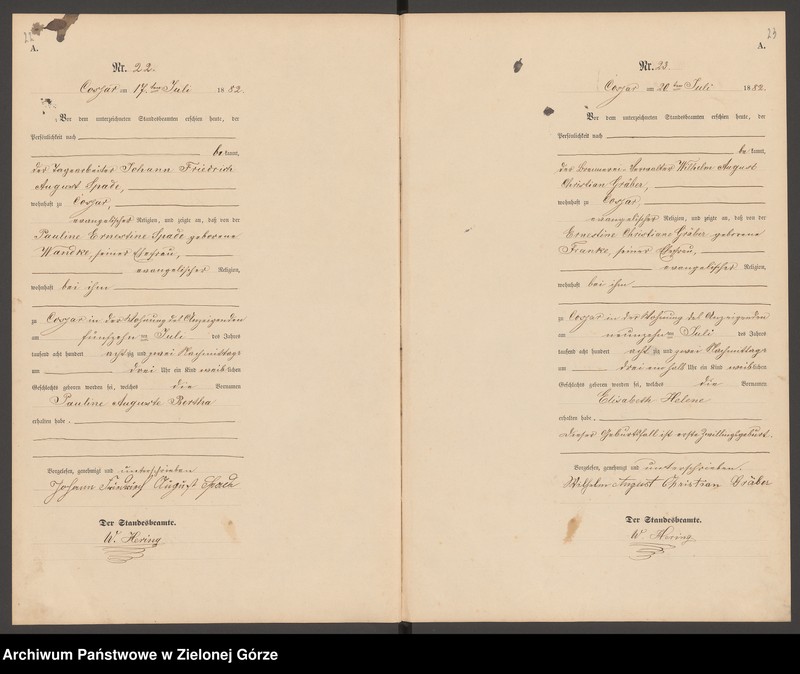 22
A.
Nr. 22.
Cosjar am 17ten Juli 1882.
Vor dem unterzeichneten Standesbeamten erschien heute, der
Persönlichkeit nach
bekannt,
der Tagearbeiter Johann Friedrich
August Spade,
wohnhaft zu Cosjar,
evangelischer Religion, und zeigte an, daß von der
Pauline Ernestine Spade geborene
Wandke, seiner Ehefrau,
evangelischer Religion,
wohnhaft bei ihm
zu Cosjar in der Wohnung des Anzeigenden
am fünfzehnten Juli des Jahres
tausend acht hundert achtzig und zwei Nachmittags
um drei Uhr ein Kind weiblichen
Geschlechts geboren worden sei, welches die Vornamen
Pauline Auguste Bertha
erhalten habe.
Vorgelesen, genehmigt und unterschrieben
Johann Friedrich August Spade
Der Standesbeamte.
W. Hering
23
A.
Nr. 23.
Cosjar am 20ten Juli 1882.
Vor dem unterzeichneten Standesbeamten erschien heute, der
Persönlichkeit nach
bekannt,
der Brennerei-Verwalter Wilhelm August
Christian Gräber,
wohnhaft zu Cosjar,
evangelischer Religion, und zeigte an, daß von der
Ernestine Christiane Gräber geborene
Franke, seiner Ehefrau,
evangelischer Religion,
wohnhaft bei ihm
zu Cosjar in der Wohnung des Anzeigenden
am neunzehnten Juli des Jahres
tausend acht hundert achtzig und zwei Nachmittags
um drei ein halb Uhr ein Kind weiblichen
Geschlechts geboren worden sei, welches die Vornamen
Elisabeth Helene
erhalten habe.
Dieser Geburtsfall ist erste Zwillingsgeburt.
Vorgelesen, genehmigt und unterschrieben.
Wilhelm August Christian Gräber
Der Standesbeamte.
W. Hering
Archiwum Państwowe w Zielonej Górze